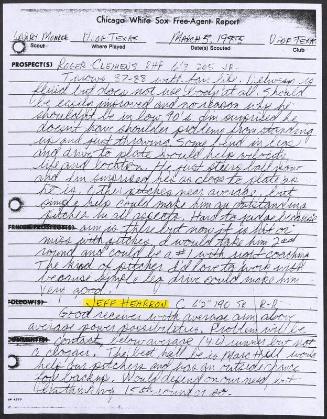 Chicago White Sox Free-Agent Report
Larry Monroe U. of Texas March 5, 1983 U. of Texas
Scout Where Date(s) Scouted Club
PROSPECT(S) Roger Clemens RHP 6'2" 205 Jr.
Throws 87-88 with fair life. Delivery is
fluid but does not use body at all. Should
be easily improved and no reason why he
shouldn't be in low 90's. I'm surprised he
doesn't have shoulder problems from standing
up and just throwing. Some bend in legs
and drive to plate should help velocity
life and location. He just steers ball now
and I'm surprised he is as close to plate as
he is. Other pitches near average but
simple help could make him an outstanding
pitcher in all aspects. Hard to judge because
arm is there but now it is hit or
miss with pitches. I would take him 2nd
round and could be a #1 with right coaching.
The kind of pitcher I'd love to work with
because simple leg drive could make him
very good.
FOLLOW(S) JEFF HEARRON C 6'2" 190 Sr. R-R
Good receiver with average arm above
average power possibilities. Problem will be
contact, below average runner but not
a clogger. The best
help our pitchers and has an outside chance
for backup. Would depend on our need but
15th round or so